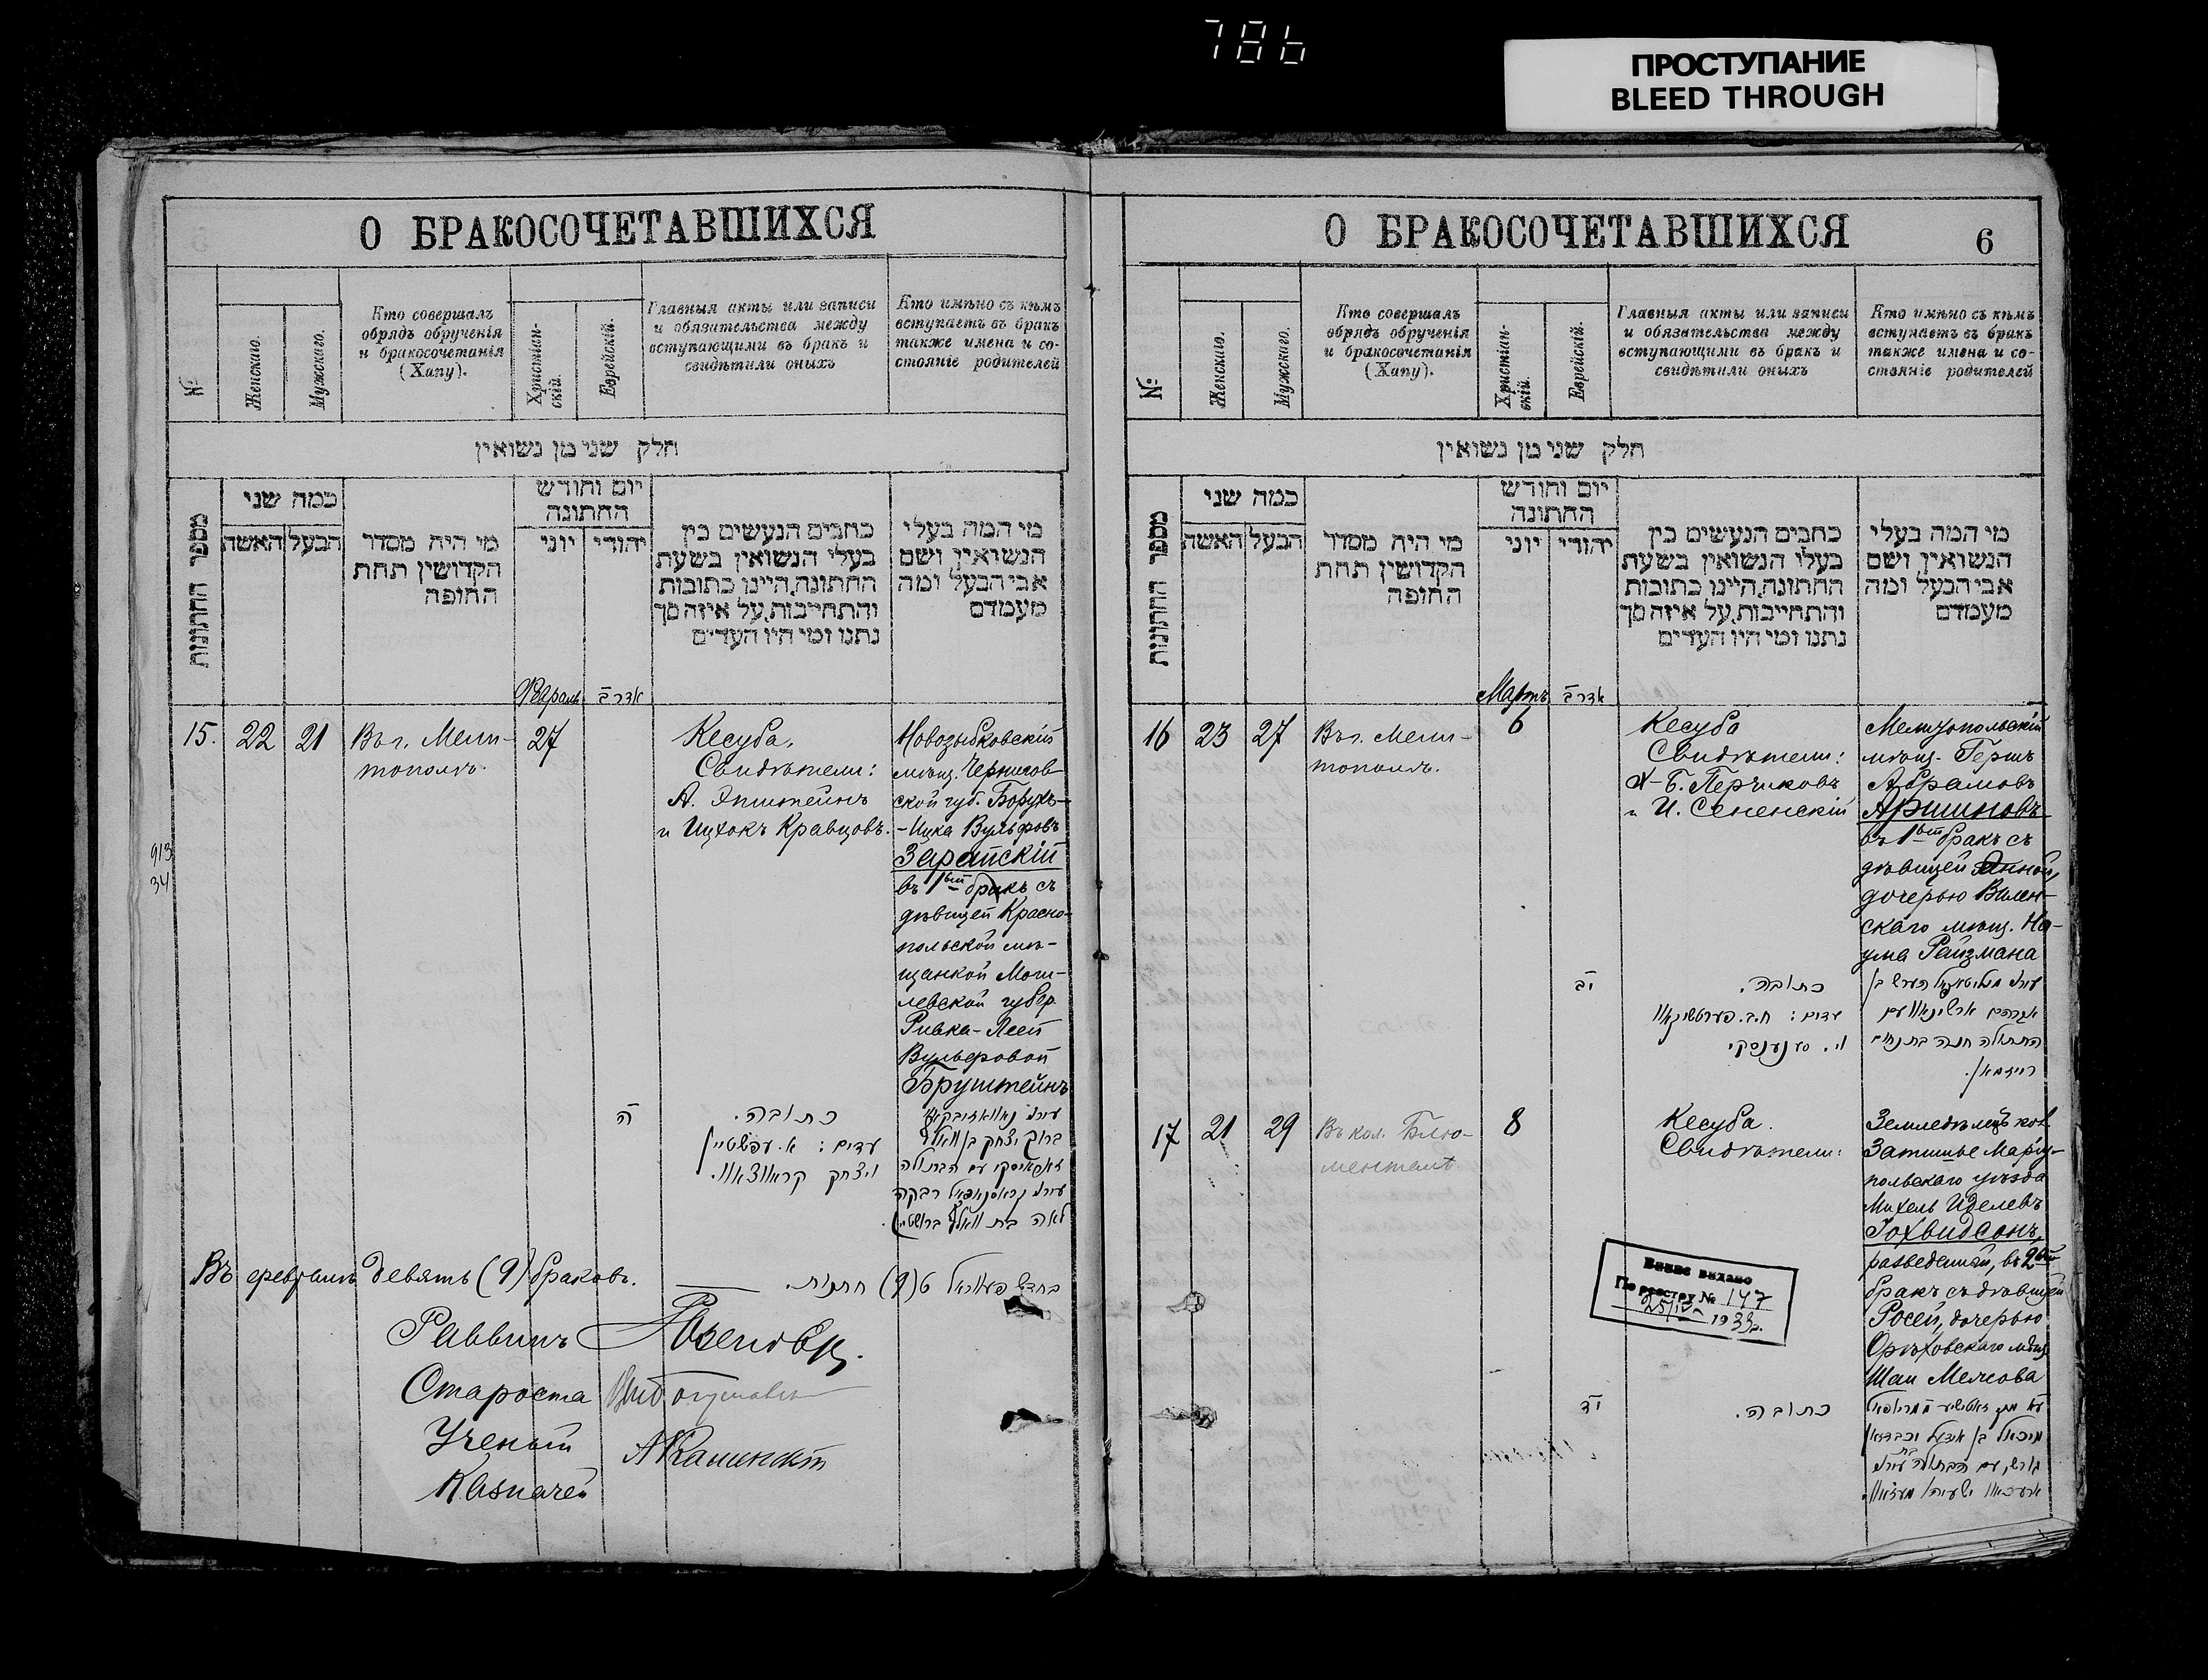 786
ПРОСТУПАНИЕ
BLEED THROUGH
О БРАКОСОЧЕТАВШИХСЯ
№
Женскаго.
Мужскаго.
Кто совершалъ
обрядъ обрученія
и бракосочетанія
(Хапу).
Христіан-
скій.
Еврейскій.
Главныя акты или записи
и обязательства между
вступающими въ бракъ и
свидѣтили оныхъ
Кто имѣно съ кѣмъ
вступаетъ въ бракъ
также имена и со-
стояніе родителей
חלק שני מן נשואין
מספר החתונות
כמה שני
האשה
הבעל
מי היה מסדר
הקדושין תחת
החופה
יום וחודש
החתונה
יוני
יהודי
כתבים הנעשים בין
בעלי הנשואין בשעת
החתונה, היינו כתובות
והתחייבות, על איזה סך
נתנו ומי היו העדים
מי המה בעלי
הנשואין ושם
אבי הבעל ומה
מעמדם
Февраль
אדר ב
15.
22
21
Въ г. Мели-
тополѣ.
27
Кесуба.
Свидѣтели:
А. Эпштейнъ
и Ицхокъ Кравцовъ.
Новозыбковскій
мѣщ. Чернигов-
ской губ. Борухъ-
-Ицка Вульфовъ
Зарайскій
въ 1ый бракъ съ
дѣвицей Красно-
польской мѣ-
щанкой Моги-
левской губер.
Ривка-Леей
Вульфовой
Бруштейнъ
913
34
ה
כתובה.
עדים: א. עפשטיין
ויצחק קראווצאוו.
ברוך יצחק בן וואלף
עם הבתולה
רבקה
לאה בת וואלף ברושטיין.
Въ февралѣ девять (9) браковъ.
בחדש פעווראל ט (9) חתונות.
Раввинъ
Староста
Ученый
Казначей
О БРАКОСОЧЕТАВШИХСЯ
6
№
Женскаго.
Мужскаго.
Кто совершалъ
обрядъ обрученія
и бракосочетанія
(Хапу).
Христіан-
скій.
Еврейскій.
Главныя акты или записи
и обязательства между
вступающими въ бракъ и
свидѣтили оныхъ
Кто имѣно съ кѣмъ
вступаетъ въ бракъ
также имена и со-
стояніе родителей
חלק שני מן נשואין
מספר החתונות
כמה שני
האשה
הבעל
מי היה מסדר
הקדושין תחת
החופה
יום וחודש
החתונה
יוני
יהודי
כתבים הנעשים בין
בעלי הנשואין בשעת
החתונה, היינו כתובות
והתחייבות, על איזה סך
נתנו ומי היו העדים
מי המה בעלי
הנשואין ושם
אבי הבעל ומה
מעמדם
Мартъ
אדר ב
16
23
27
Въ г. Мели-
тополѣ.
6
Кесуба
Свидѣтели:
Х-Б. Перчиковъ
и И. Сененскій
Мелитопольскій
мѣщ. Гершъ
Абрамовъ
Аршиновъ
въ 1ый бракъ съ
дѣвицей Анной,
дочерью Вилен-
скаго мѣщ. На-
ума Райзмана
יב
כתובה.
עדים: ח.ב. פערטשיקאוו
וי. סענענסקי
אברהם ארשינאוו עם
הבתולה חנה בת נחום
רייזמאן.
17
21
29
Въ кол. Блю-
менталѣ
8
Кесуба.
Свидѣтели:
Земледѣлецъ кол.
Затишье Маріу-
польскаго уѣзда
Михель Иделевъ
разведеный, въ 2ой
бракъ съ дѣвицей
Росей, дочерью
Орѣховскаго мѣщ.
Шаи Межова
Випис видано
По реєстру № 147
25/IV 1933р.
יד
כתובה.